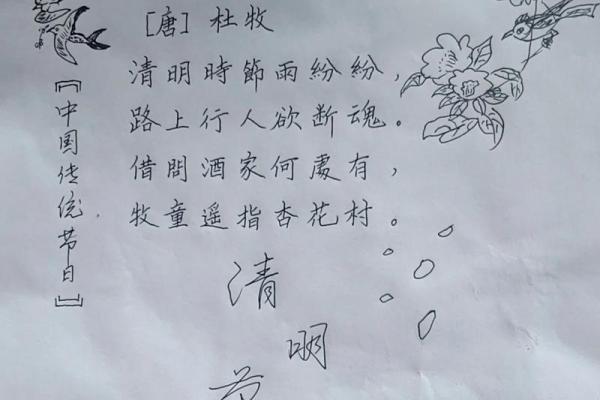 [唐]杜牧
清明時節雨紛紛，
路上行人欲断魂。
借問酒家何處有，
牧童遥指杏花村。
【中国传统节日】
清
明
节